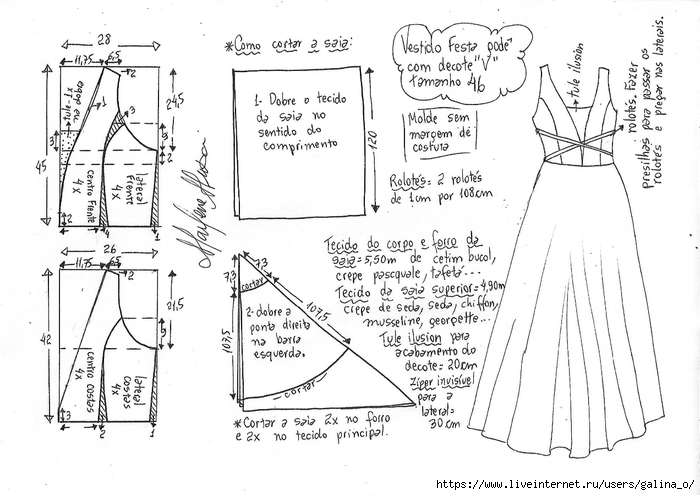 28
11,75
6,5
2
1
3
24,5
9
2
tule-1x
ou edobe
3
45
centro Frente
4x
lateral
Frente
4x
2
4
1
26
11,75
6,5
2
21,5
9
42
centro costas
4x
lateral
costas
4x
3
2
1
*Como cortar a saia:
1- Dobre o tecido
da saia no
sentido do
comprimento
120
7,3
7,3
cortar
107,5
107,5
2- dobre a
ponta direita
na barra
esquerda.
cortar
*Cortar a saia 2x no forro
e 2x no tecido principal.
Vestido Festa podê
com decote "V"
tamanho 46
Molde sem
margem de
costura
Rolotês = 2 rolotês
de 1cm por 108cm
Tecido do corpo e forro da
saia = 5,50m de cetim bucol,
crepe pasquale, tafetá...
Tecido da saia superior = 4,90m
crepe de seda, seda, chiffon,
musseline, georgette...
Tule ilusion para
acabamento do
decote = 20cm
Zíper invisível
para a
lateral =
30cm
tule ilusion
rolotês. Fazer
presilhas para passar os
rolotês e pregar nas laterais.
https://www.liveinternet.ru/users/galina_o/